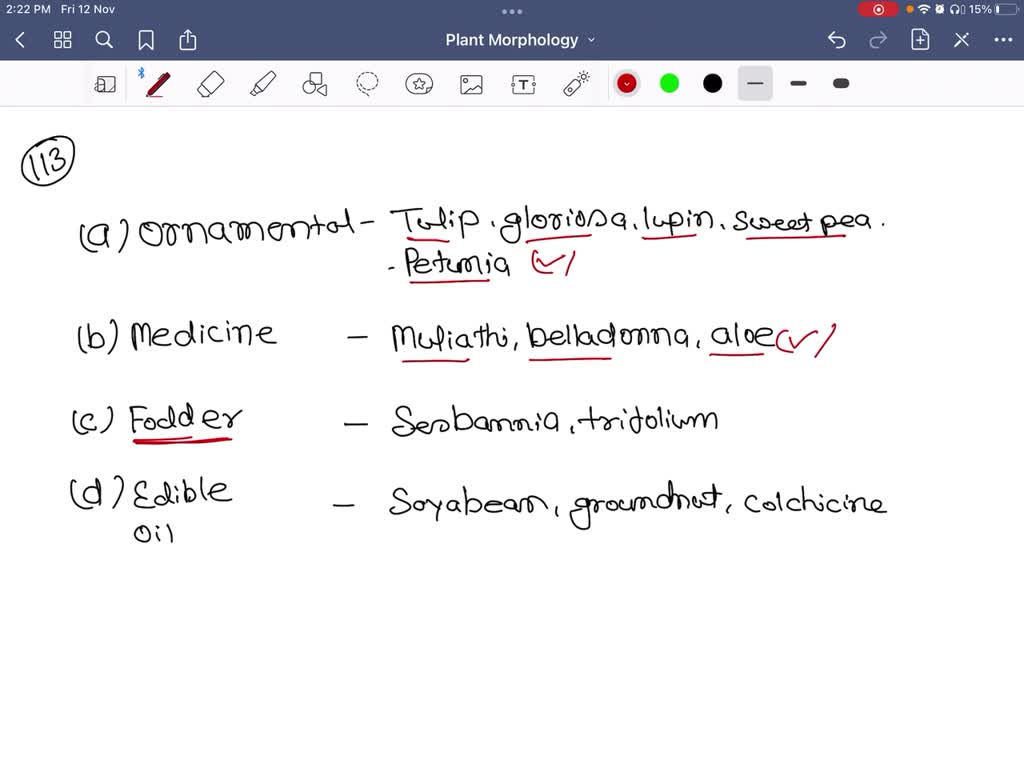 2:22 PM Fri 12 Nov
15%
Plant Morphology
T
113
(a) Ornamental - Tulip, gloriosa, lupin, sweet pea.
- Petunia
(b) Medicine - Muliathi, belladonna, aloe
(c) Fodder - Sesbannia, trifolium
(d) Edible - Soyabean, groundnut, colchicine
Oil